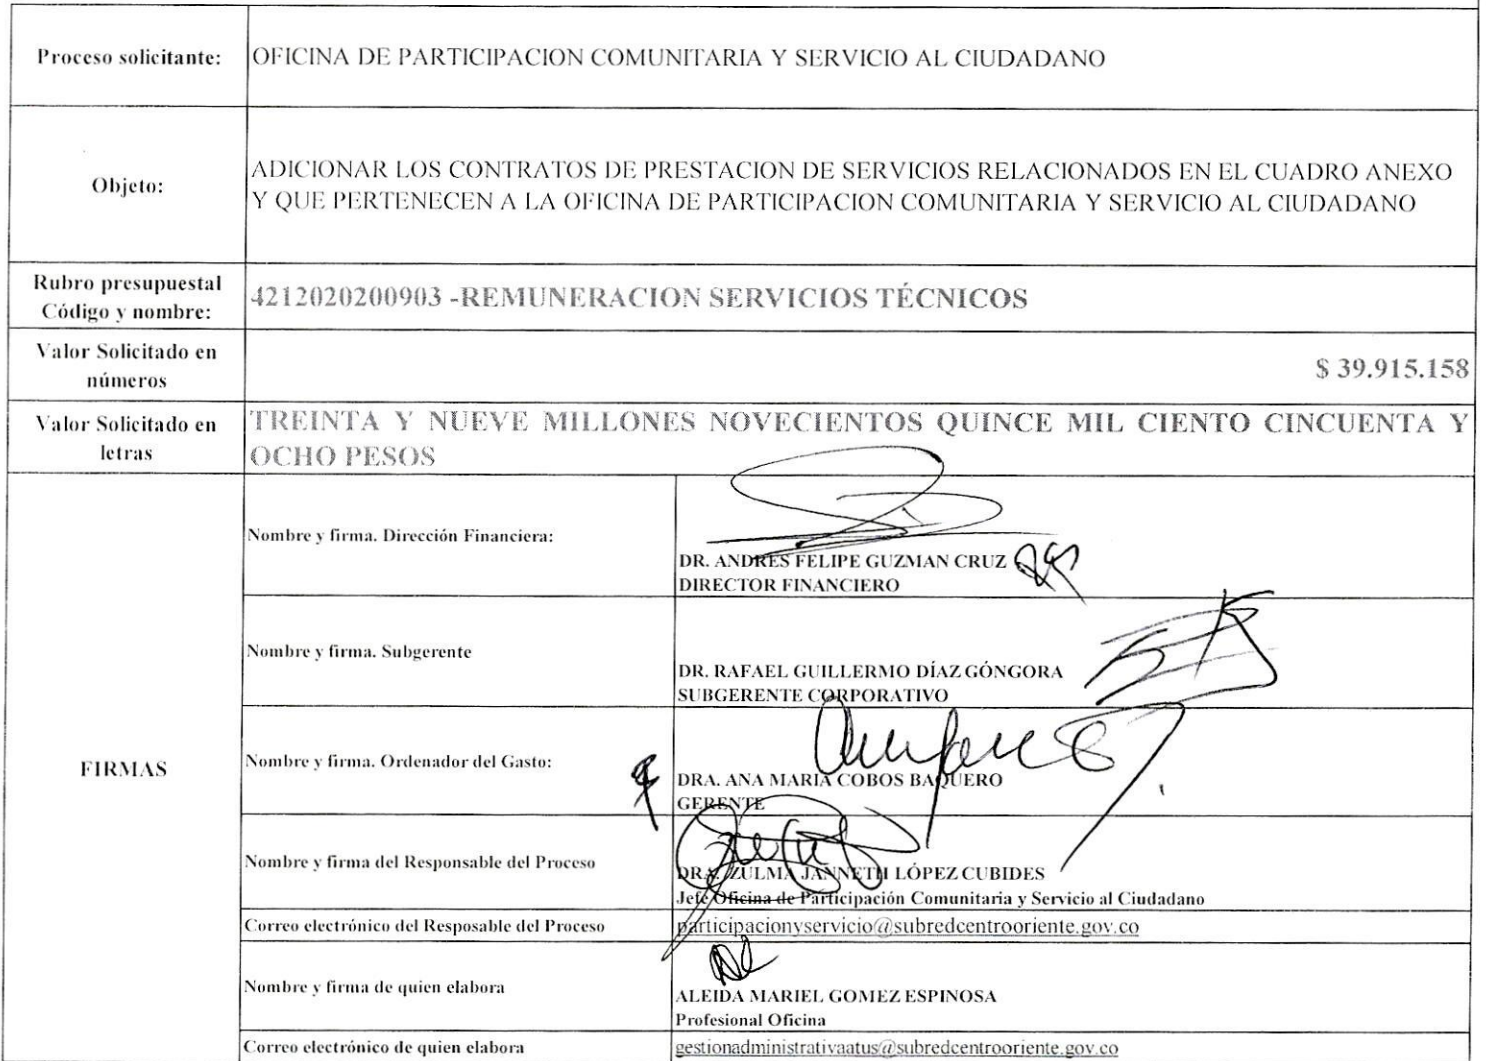 Proceso solicitante: OFICINA DE PARTICIPACION COMUNITARIA Y SERVICIO AL CIUDADANO
Objeto: ADICIONAR LOS CONTRATOS DE PRESTACION DE SERVICIOS RELACIONADOS EN EL CUADRO ANEXO
Y QUE PERTENECEN A LA OFICINA DE PARTICIPACION COMUNITARIA Y SERVICIO AL CIUDADANO
Rubro presupuestal
Código y nombre:
4212020200903 -REMUNERACION SERVICIOS TÉCNICOS
Valor Solicitado en
números
$ 39.915.158
Valor Solicitado en
letras
TREINTA Y NUEVE MILLONES NOVECIENTOS QUINCE MIL CIENTO CINCUENTA Y
OCHO PESOS
FIRMAS
Nombre y firma. Dirección Financiera:
DR. ANDRES FELIPE GUZMAN CRUZ
DIRECTOR FINANCIERO
Nombre y firma. Subgerente
DR. RAFAEL GUILLERMO DÍAZ GÓNGORA
SUBGERENTE CORPORATIVO
Nombre y firma. Ordenador del Gasto:
DRA. ANA MARIA COBOS BAQUERO
GERENTE
Nombre y firma del Responsable del Proceso
DRA. ZULMA JANNETH LÓPEZ CUBIDES
Jefe Oficina de Participación Comunitaria y Servicio al Ciudadano
Correo electrónico del Resposable del Proceso
participacionyservicio@subredcentrooriente.gov.co
Nombre y firma de quien elabora
ALEIDA MARIEL GOMEZ ESPINOSA
Profesional Oficina
Correo electrónico de quien elabora
gestionadministrativaatus@subredcentrooriente.gov.co